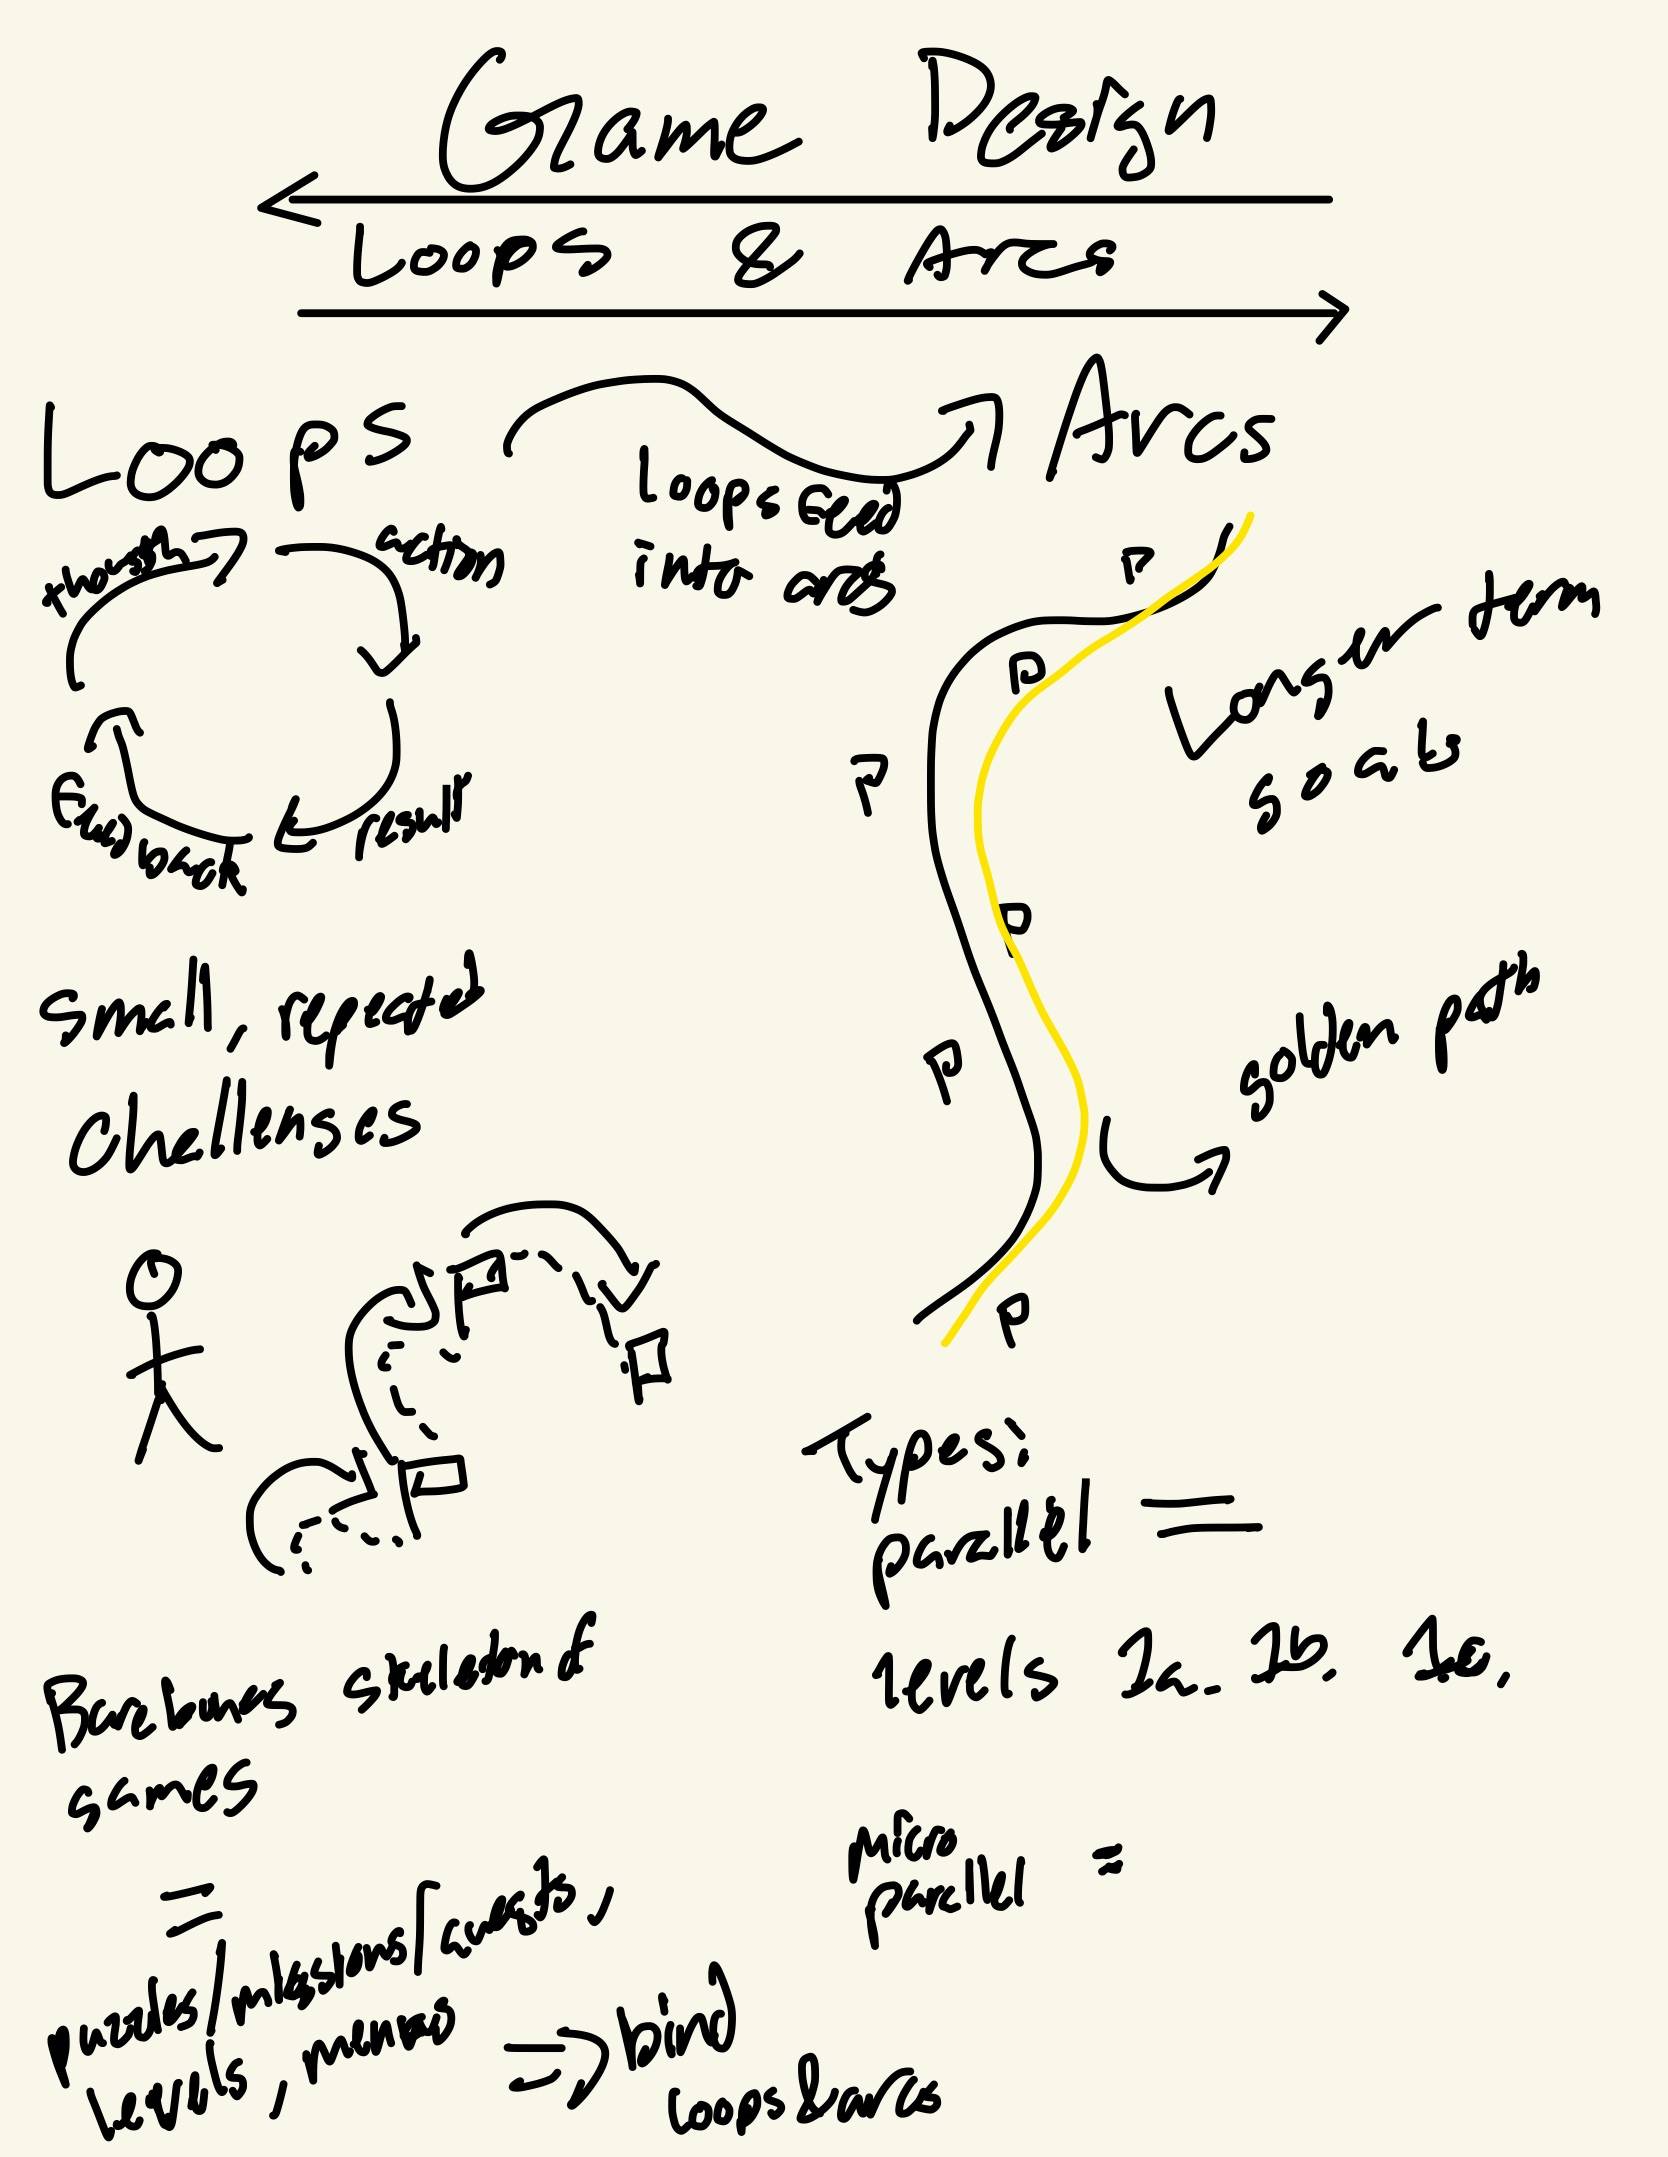 Game Design
Loops & Arcs
Loops
Arcs
Loops feed
into arcs
thought
action
result
Feedback
small, repeated
challenges
Longer term
goals
golden path
Barebones skeleton of
games
=
puzzles/missions/quests,
levels, menus => bind
loops & arcs
Types:
parallel =
levels 1a. 1b. 1c.
micro
parallel =